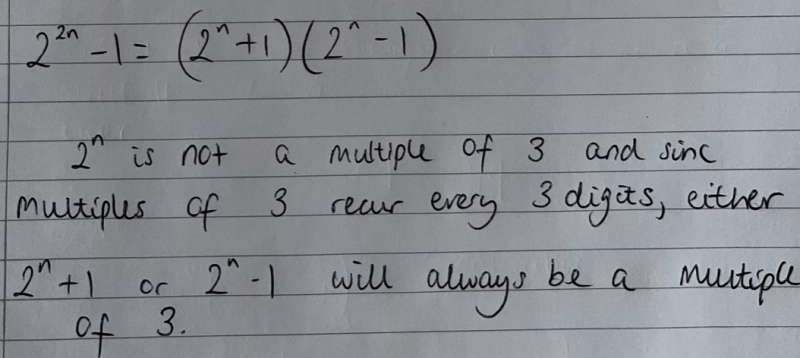 2²ⁿ - 1 = (2ⁿ + 1)(2ⁿ - 1)
2ⁿ is not a multiple of 3 and sinc
multiples of 3 recur every 3 digits, either
2ⁿ + 1 or 2ⁿ - 1 will always be a multiple
of 3.